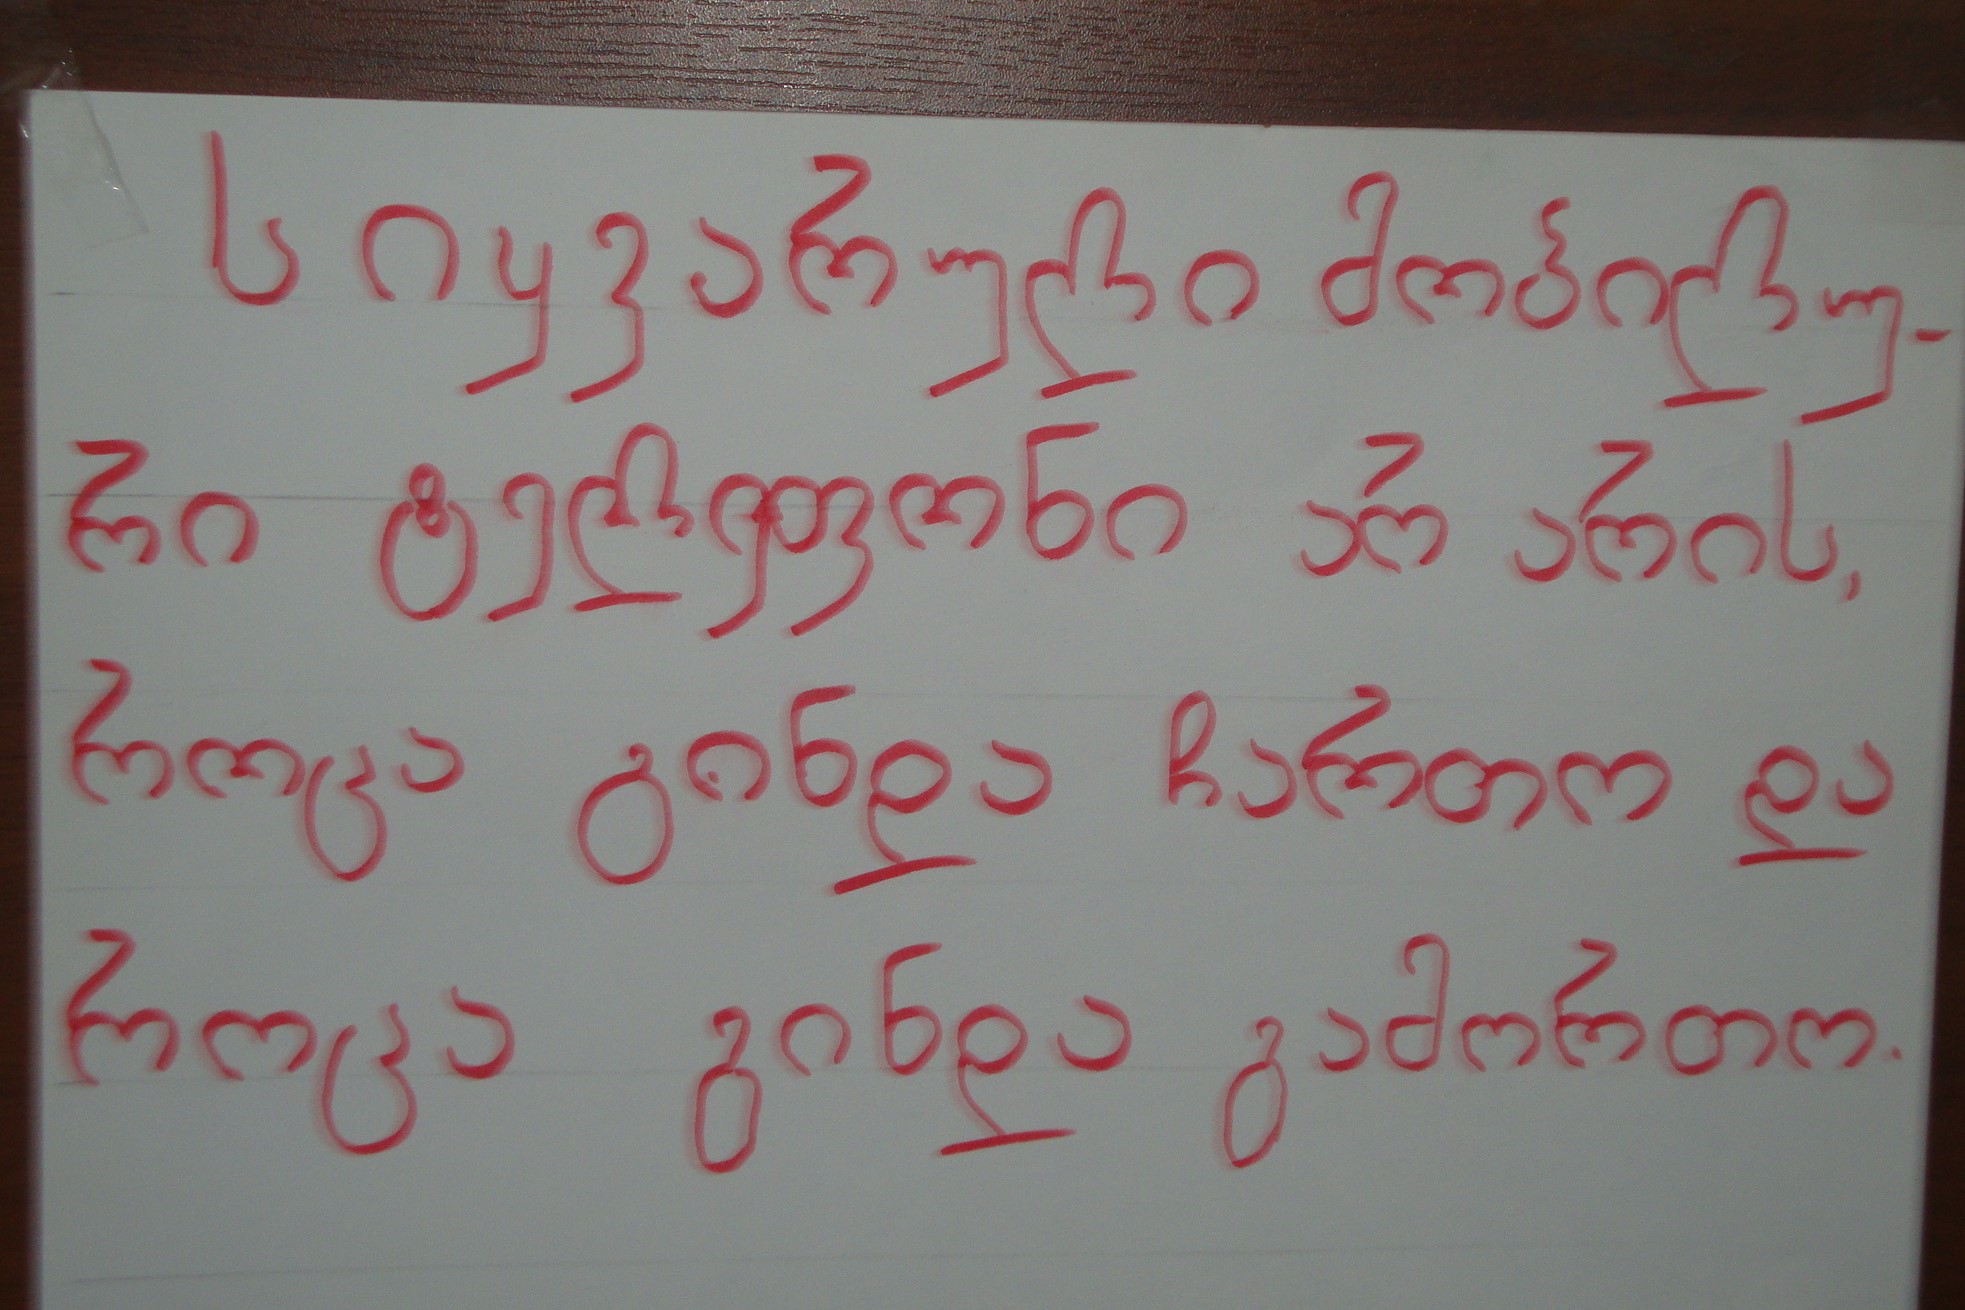 სიყვარული მობილუ-
რი ტელეფონი არ არის,
როცა გინდა ჩართო და
როცა გინდა გამორთო.